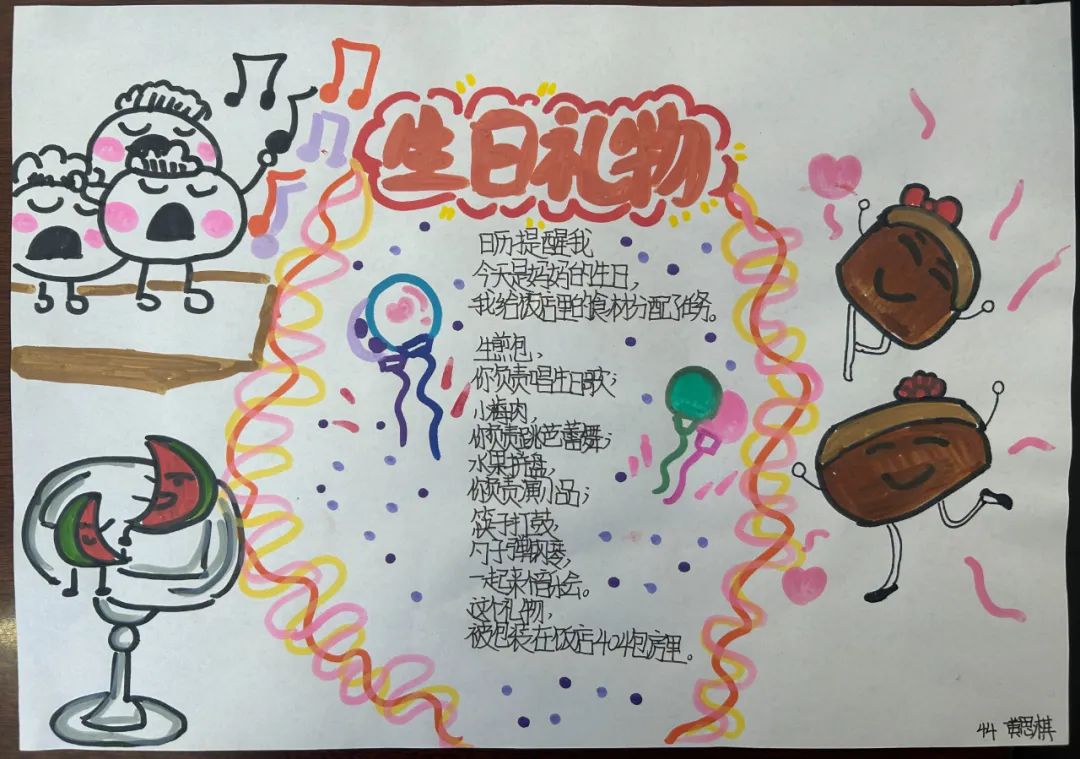 生日礼物
日历提醒我
今天是妈妈的生日,
我给饭店里的食材分配任务。
生煎包,
你负责唱生日歌;
小梅肉,
你负责跳芭蕾舞;
水果拼盘,
你负责演小品;
筷子打鼓,
勺子弹钢琴,
一起来偶尔会。
这个礼物,
被包装在饭店404包房里。
44 黄思棋